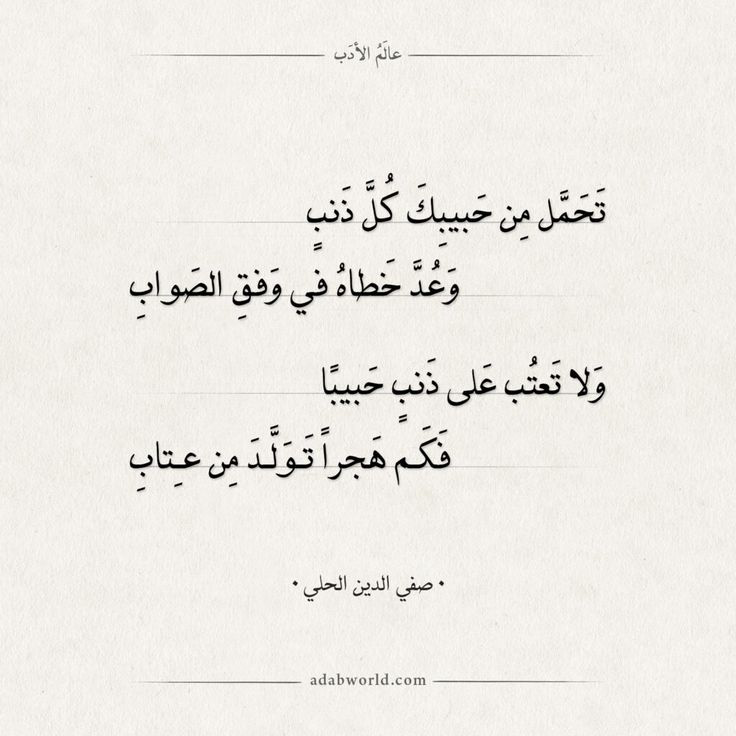 عالَمُ الأدَب
تَحَمَّل مِن حَبيبِكَ كُلَّ ذَنبٍ
وَعُدَّ خَطاهُ في وَفقِ الصَوابِ
وَلا تَعتُب عَلى ذَنبٍ حَبيبًا
فَكَم هَجراً تَوَلَّدَ مِن عِتابِ
• صفي الدين الحلي •
adabworld.com